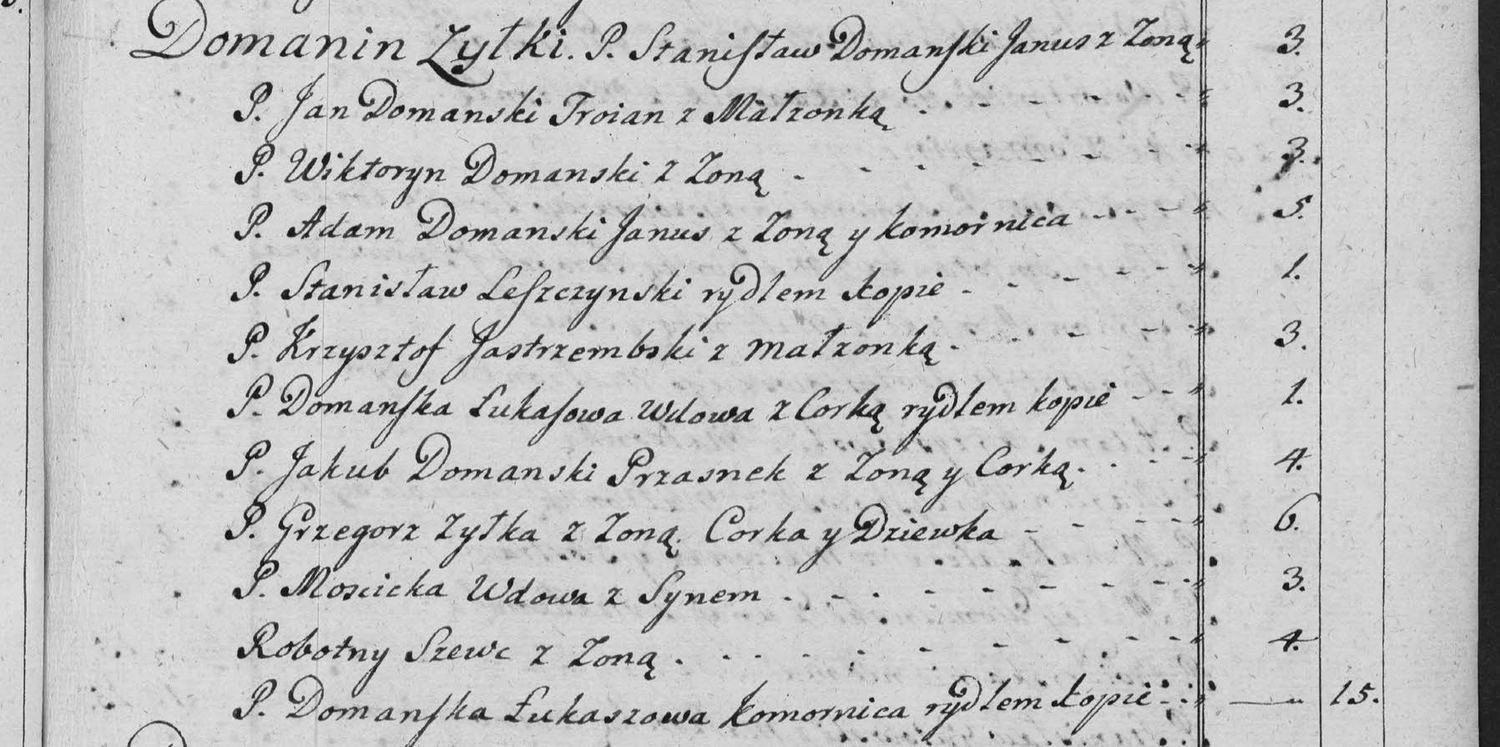 Domanin Zyłki. P. Stanisław Domanski Janus z Zoną 3.
P. Jan Domanski Troian z Małzonką 3.
P. Wiktoryn Domanski z Zoną 3.
P. Adam Domanski Janus z Zoną y komornica 5.
P. Stanisław Leszczynski rydlem kopie 1.
P. Krzysztof Jastrzembski z małzonką 3.
P. Domanska Łukasowa Wdowa z Corką rydlem kopie 1.
P. Jakub Domanski Przasnek z Zoną y Corką. 4.
P. Grzegorz Zyłka z Zoną. Corka y Dziewka 6.
P. Moscicka Wdowa z Synem 3.
Robotny Szewc z Zoną 4.
P. Domanska Łukaszowa komornica rydlem kopie — 15.